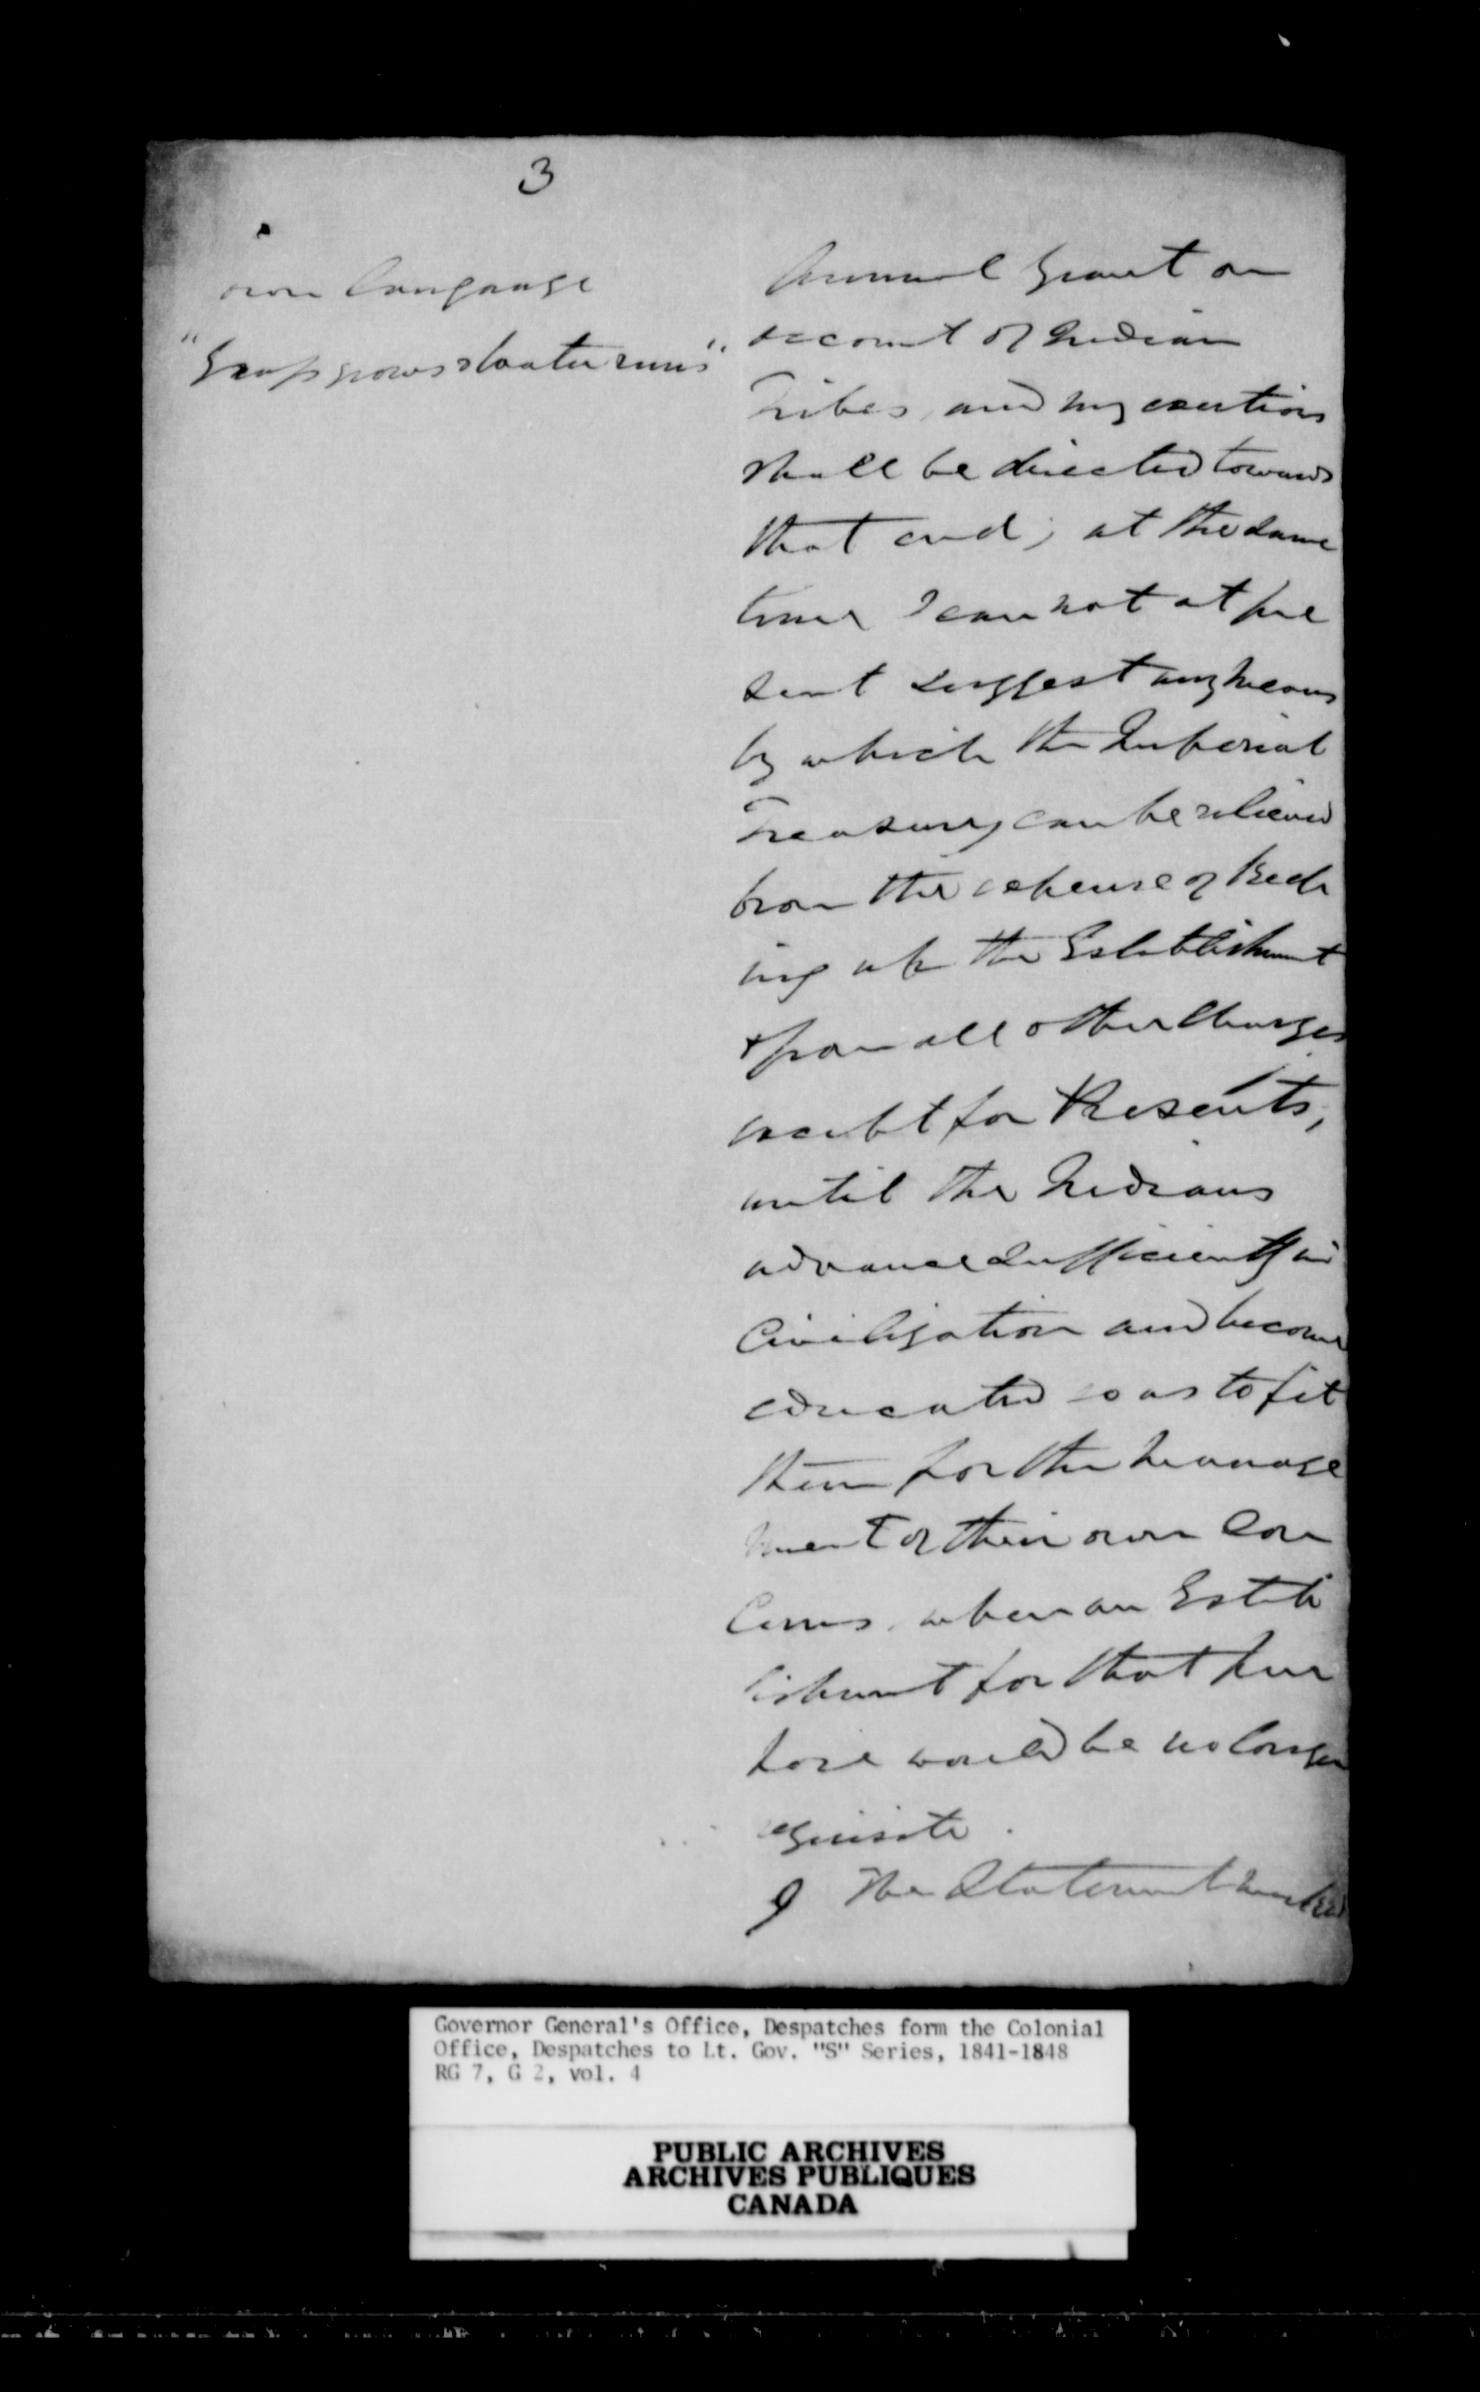 3
own language
"Grass grows & water runs".
Annual Grant on
account of Indian
Tribes, and my exertions
shall be directed towards
that end; at the same
time I can not at pre
sent suggest any means
by which the Imperial
Treasury can be relieved
from the expense of keep
ing up the Establishment
& from all other Charges
except for Presents,
until the Indians
advance sufficiently in
Civilization and become
educated so as to fit
them for the manage
ment of their own Con
cerns, when an Estab
lishment for that pur
pose would be no longer
requisite.
9 The Statement marked
Governor General's Office, Despatches form the Colonial
Office, Despatches to Lt. Gov. "S" Series, 1841-1848
RG 7, G 2, vol. 4
PUBLIC ARCHIVES
ARCHIVES PUBLIQUES
CANADA